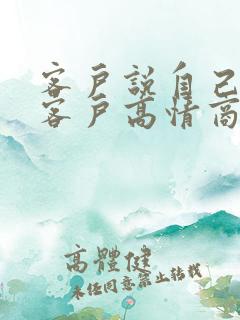 客戶說自己
客戶高情商
高體健
未经同意禁止转载